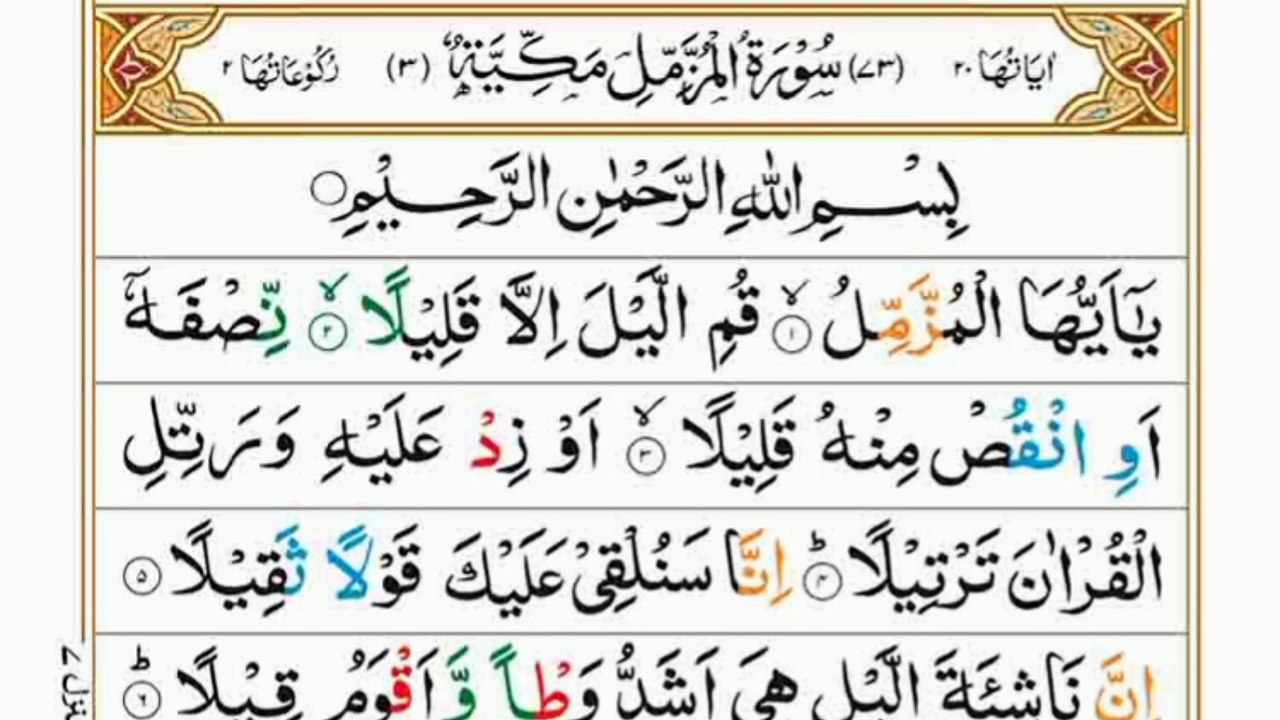 اٰيَاتُهَا ٢٠ (٧٣) سُوْرَةُ الْمُزَّمِّلِ مَكِّيَّةٌ (٣) رُكُوْعَاتُهَا ٢
بِسْمِ اللّٰهِ الرَّحْمٰنِ الرَّحِيْمِ ○
يٰۤاَيُّهَا الْمُزَّمِّلُ ۙ‏﴿۱﴾ قُمِ الَّيْلَ اِلَّا قَلِيْلًا ۙ‏﴿۲﴾ نِّصْفَهٗۤ
اَوِ انْقُصْ مِنْهُ قَلِيْلًا ۙ‏﴿۳﴾ اَوْ زِدْ عَلَيْهِ وَرَتِّلِ
الْقُرْاٰنَ تَرْتِيْلًا ؕ‏﴿۴﴾ اِنَّا سَنُلْقِىْ عَلَيْكَ قَوْلًا ثَقِيْلًا ﴿۵﴾
اِنَّ نَاشِئَةَ الَّيْلِ هِىَ اَشَدُّ وَطْاً وَّاَقْوَمُ قِيْلًا ؕ‏﴿۶﴾
منزل ٧